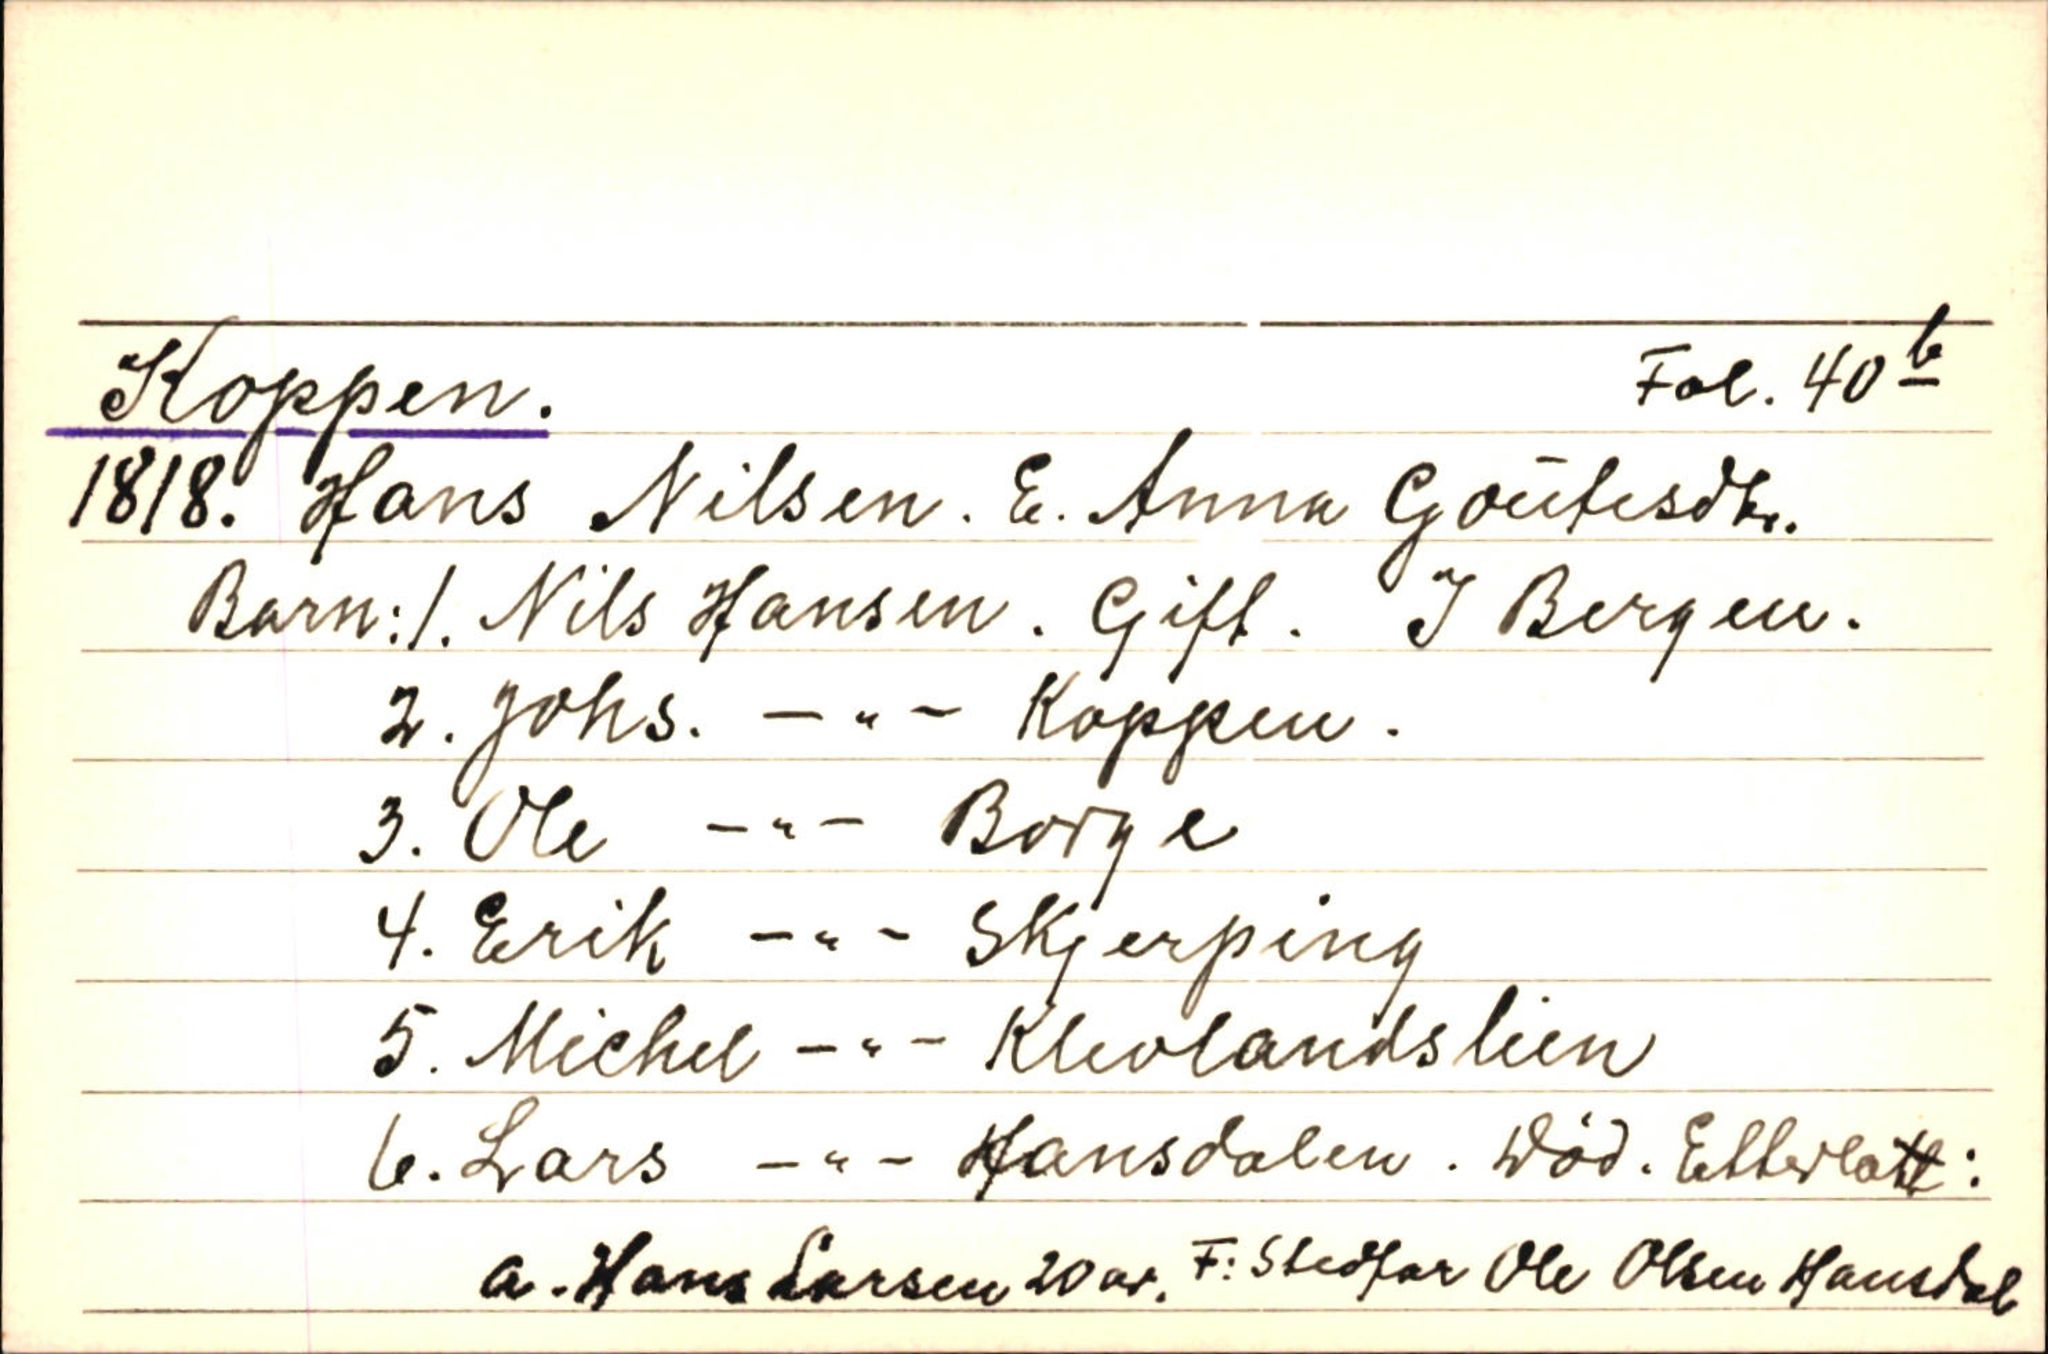 Koppen. Fol. 40 b
1818. Hans Nilsen. E. Anna Goütesdtr.
Barn: 1. Nils Hansen. Gift. I Bergen.
2. Johs. -"- Koppen.
3. Ole -"- Borge
4. Erik -"- Skjerping
5. Michel -"- Klevlandslien
6. Lars -"- Hansdalen. Död. Etterlatt:
a. Hans Larsen 20 år. F: Stedfar Ole Olsen Hansdal